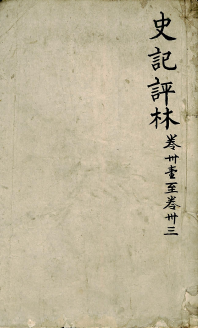 史記評林 卷卅壹至卷卅三